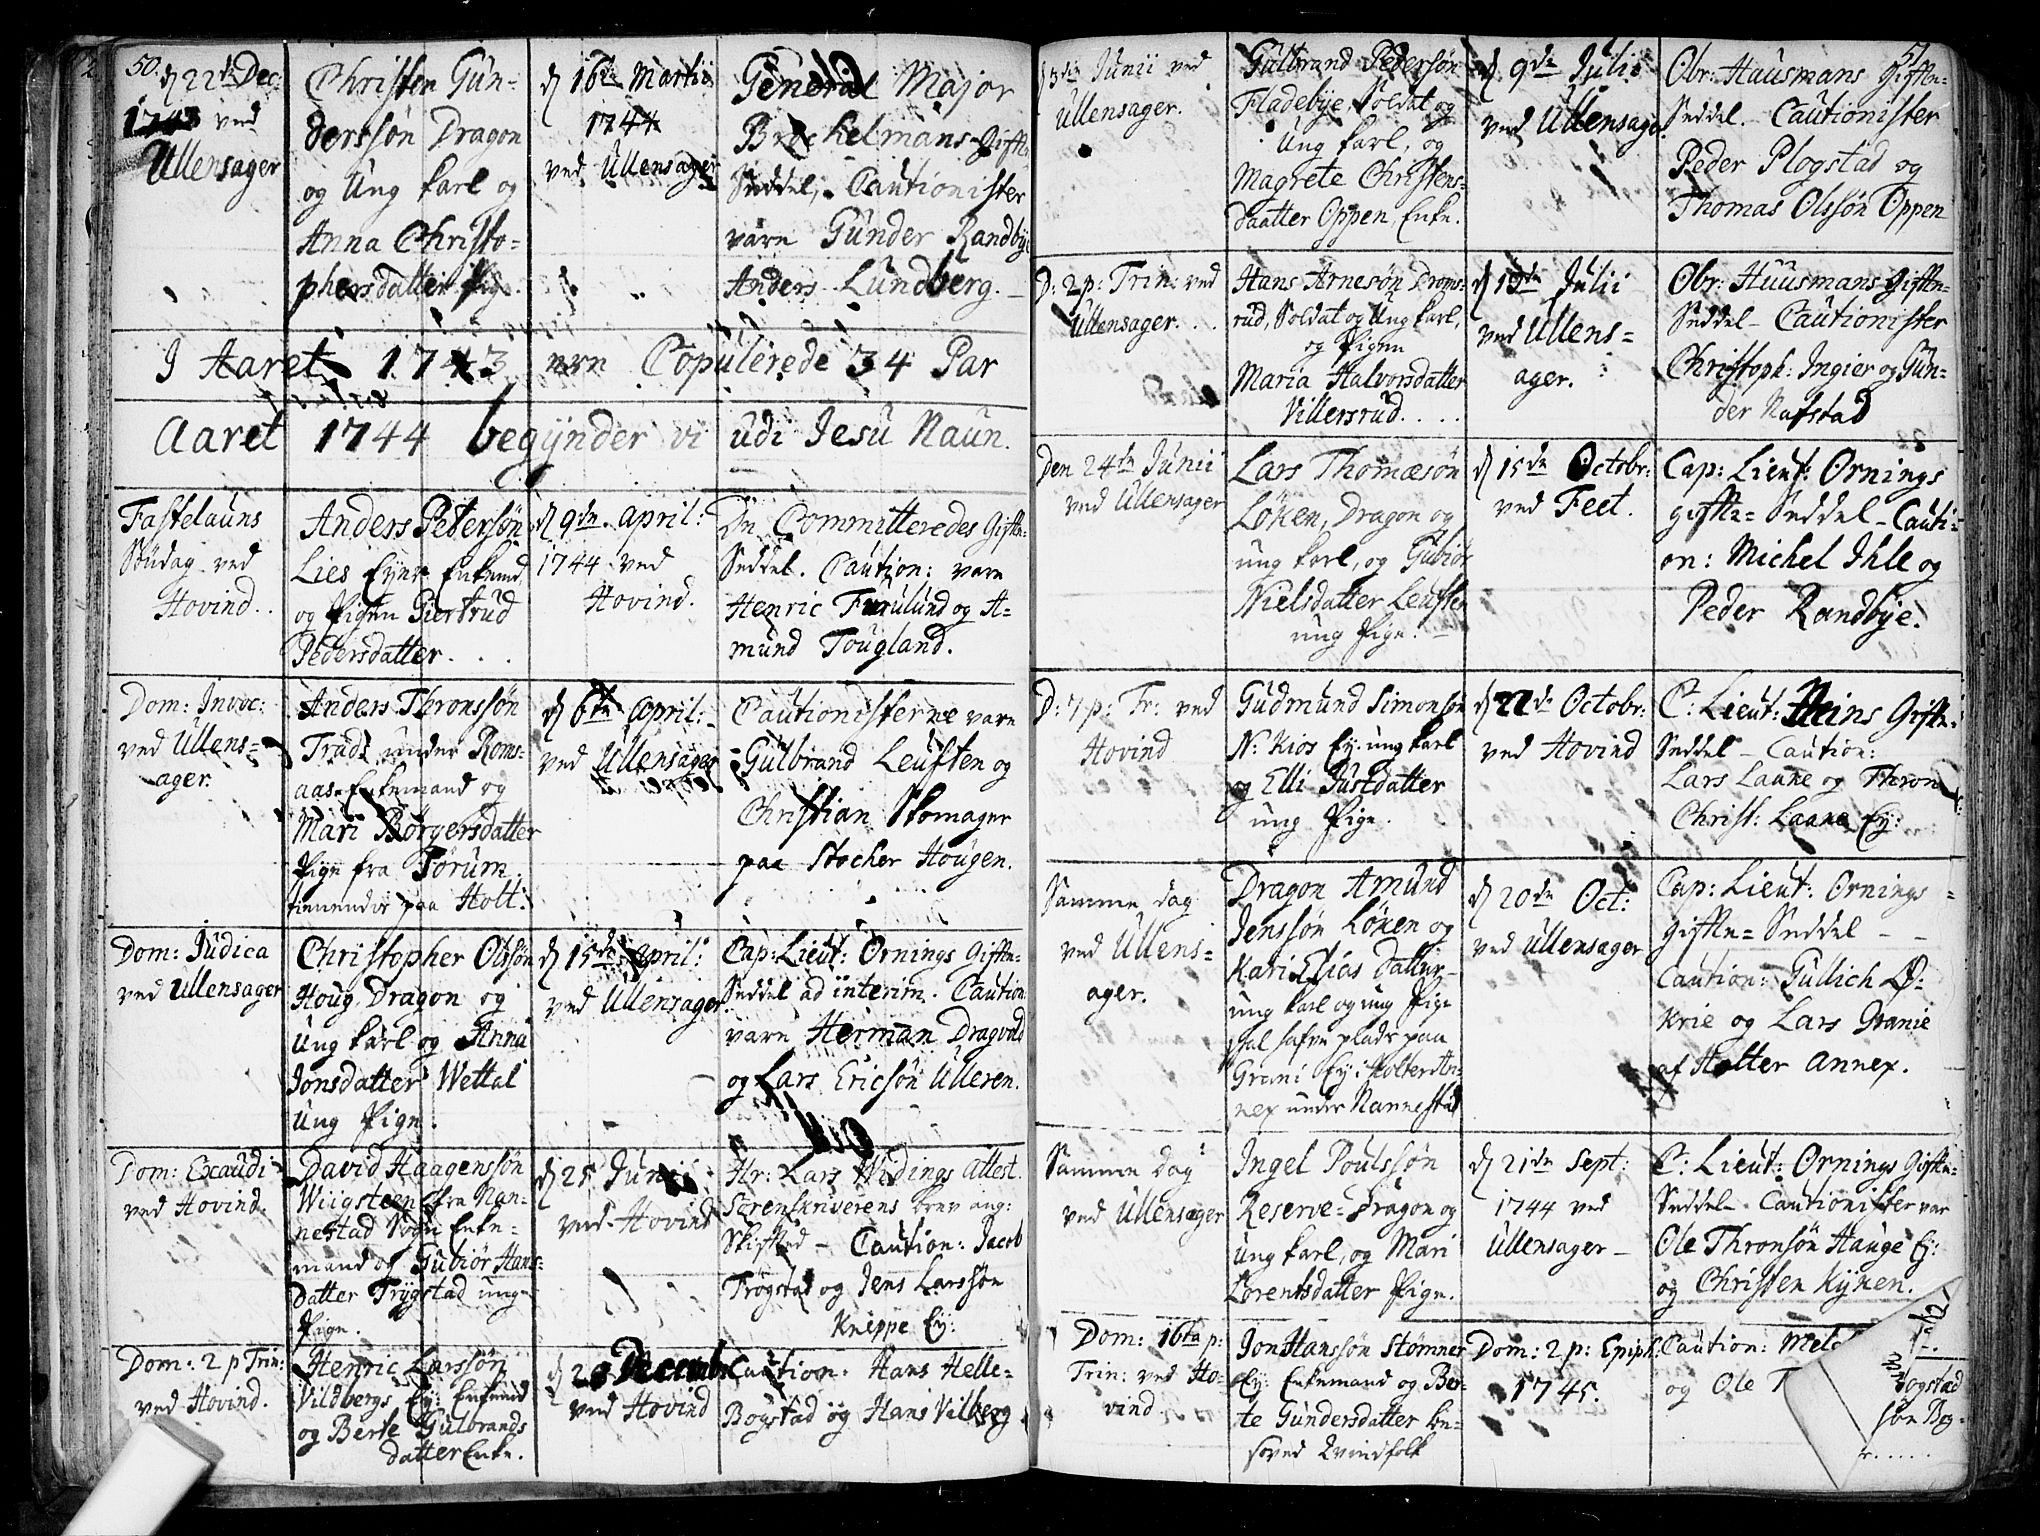 50.
d 22de Dec:
1743 ved
Ullensager
Christen Gun-
derssøn Dragon
og Ung karl og
Anna Christo-
phersdatter Pige.
d 16de Martii
1744
ved Ullensager
General Major
Brochelmans Gifte-
Seddel, Cautionister
vare Gunder Randbye
Anders Lundberg.
I Aaret 1743 ere Copulerede 34 Par
Aaret 1744 begynder vi udi Jesu Naun.
Fastelauns
Søndag ved
Hovind.
Anders Petersøn
Lies Eyer Enkemd
og Pigen Giertrud
Pedersdatter.
d 9de April:
1744 ved
Hovind.
De Committeredes Gifte-
Seddel. Caution: vare
Henric Furulund og A-
mund Tougland.
Dom: Invoc:
ved Ullens-
ager.
Anders Thronssøn
Trads under Roms-
aas Enkemand og
Mari Børgersdatter
Pige fra Torum
tienendis paa Holt:
d 6te April:
ved Ullensager
Cautionisterne vare
Gulbrand Leusten og
Christian Skomager
paa Stocker Hougen.
Dom: Judica
ved Ullensager
Christopher Olssøn
Houg, Dragon og
Ung karl og Anna
Jonsdatter Wettal
Ung Pige.
d 15de April:
ved Ullensager
Cap: Lieut: Ornings Gifte-
Seddel ad interim. Caution:
vare Herman Dragvold
og Lars Ericsøn Ulleren.
Dom: Exaudi
ved Hovind.
David Haagenssøn
Wiigsteen fra Nan-
nestad Sogn Enke-
mand og Gubiør Hans-
datter Trygstad ung
Pige.
d 25 Junii
ved Hovind
Hr: Lars Widings Attest.
Sorenskriverens brev ang:
Skifted - Caution: Jacob
Trøgstad og Jens Larssøn
Kneppe Ey:
Dom: 2 p Trin:
ved Hovind.
Henric Larssøn
Vildbergs Ey: Enkemd
og Berte Gulbrands
datter Enke.
Decembr
ved Hovind
Caution: Hans Helle-
Bogstad og Hans Vilberg
51.
d 3die Junii ved
Ullensager.
Gulbrand Pedersøn
Fladebye, Soldat og
Ung karl, og
Magrete Christens-
daatter Oppen, Enke.
d 9de Julii
ved Ullensager
Obr: Hausmans Gifte-
Seddel. Cautionister
Peder Plogstad og
Thomas Olssøn Oppen
D: 2 p: Trin: ved
Ullensager.
Hans Arnesøn Droms-
rud, Soldat og Ung karl,
og Pigen
Maria Halvorsdatter
Villersrud.
d 19de Julii
ved Ullens-
ager.
Obr: Huusmans Gifte-
Seddel - Cautionister
Christoph: Ingier og Gun-
der Nafstad
Den 24de Junii
ved Ullensager
Lars Thomæsøn
Løken, Dragon og
ung karl, og Gubiør
Nielsdatter Leusten
ung Pige.
d 15de Octobr:
ved Feet.
Cap: Lieut: Ornings
gifte- Seddel - Cauti-
on: Michel Ihle og
Peder Randbye.
D: 7 p: Tr: ved
Hovind
Gudmund Simonsøn
N: Kios Ey: ung karl
og Elli Justdatter
ung Pige.
d 22de Octobr:
ved Hovind
C: Lieut: Heins Gifte-
Seddel - Caution:
Lars Laane og Thron
Christ: Laane Ey:
Samme dag
ved Ullens-
ager.
Dragon Amund
Jenssøn Løken og
Kari Elias datter
ung karl og ung Pige
skal hafve plads paa
Grani Ey i Holter An-
nex under Nannestad
d 20de Oct:
ved Ullensager
Cap: Lieut: Ornings
gifte- Seddel
Caution: Gullich Ø-
krie og Lars Granie
af Holter Annex.
Samme dag
ved Ullensager
Ingel Poulssøn
Reserve-Dragon og
Ung karl, og Mari
Lorentsdatter Pige.
d 21de Sept:
1744 ved
Ullensager
C: Lieut: Ornings Gifte-
Seddel - Cautionister var
Ole Thronsøn Hauge Ey:
og Christen Kynen.
Dom: 16ta p:
Trin: ved Ho-
vind.
Jon Hanssøn Stømner
Ey: Enkemand og Ber-
te Gundersdatter be-
soved Qvindfolk
Dom: 2 p: Epiph:
1745.
Caution:
og Ole